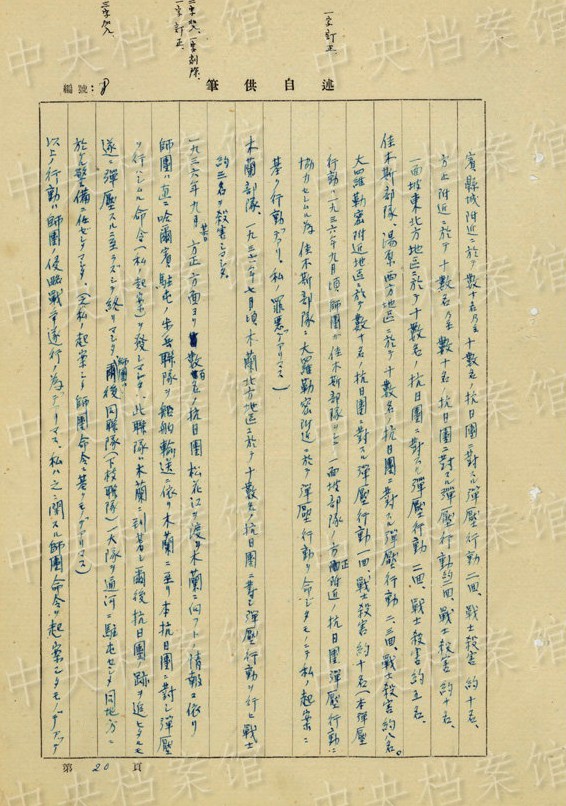 一字訂正
二字揆、一字削除、
一字訂正、
三字抗、
中央档案馆
述自供筆
編號：
賓縣城附近ニ於テ數十名乃至十數名ノ抗日團ニ對スル彈壓行動二回、戰士殺害約十名、
方正附近ニ於テ十數名乃至數十名ノ抗日團ニ對スル彈壓行動約二回、戰士殺害約十名、
一面坡東北方地區ニ於テ十數名ノ抗日團ニ對スル彈壓行動二回、戰士殺害約五名、
佳木斯部隊、湯原西方地區ニ於テ十數名ノ抗日團ニ對スル彈壓行動二、三回、戰士殺害約八名。
大羅勒密附近地區ニ於テ數十名ノ抗日團ニ對スル彈壓行動一回戰士殺害約十名（本彈壓
行動ハ一九三六年九月頃師團ガ佳木斯部隊ヲシテ一面坡部隊ノ方正附近ノ抗日團彈壓行動ニ
協力セシムル為佳木斯部隊ニ大羅勒密附近ニ於テ彈壓行動ヲ命ジタモノニテ私ノ起案ニ
基ク行動デアリ、私ノ罪悪デアリマス）
木蘭部隊、一九三六年七月頃、木蘭北方地區ニ於テ十數名ノ抗日團ニ對シ彈壓行動ヲ行ヒ戰士
約三名ヲ殺害シマシタ。
一九三六年九月頃方正方面ヨリ數百名ノ抗日團松花江ヲ渡リ木蘭ニ向フトノ情報ニ依リ
師團ハ直ニ哈爾賓駐屯ノ步兵聯隊ヲ船舶輸送ニ依リ木蘭ニ至リ本抗日團ニ對シ彈壓
ヲ行ハシムル命令（私ノ起案）ヲ發シマシタ、此聯隊ハ木蘭ニ到着シ爾後抗日團ノ跡ヲ追ヒタルモ
遂ニ彈壓スルニ至ラズシテ終リマシタ、師團ハ爾後同聯隊（下枝聯隊）ノ一大隊ヲ通河ニ駐屯セシメ同地方ニ
於ケル警備ニ任セシメマシタ、（之私ノ起案ニテ師團命令ニ基クモノデアリマス）
以上ノ行動ハ師團ノ侵略戰爭遂行ノ為デアリマス、私ハ之ニ關スル師團命令ヲ起案シタモノデアツテ
第 20 頁